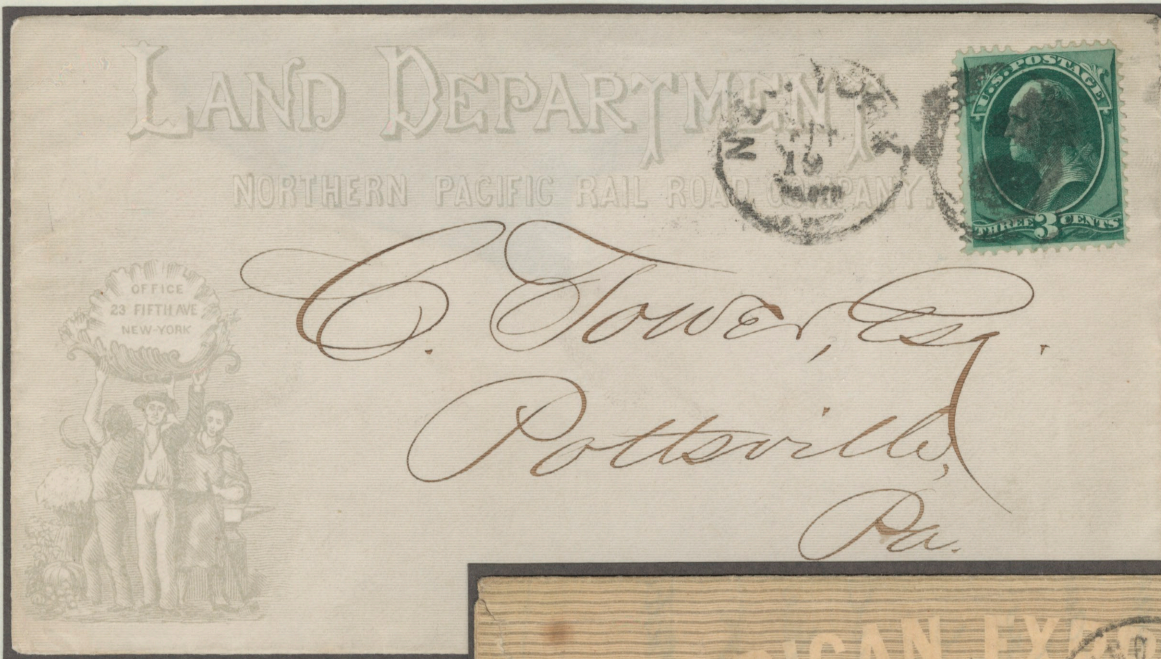 LAND DEPARTMENT
NORTHERN PACIFIC RAIL ROAD COMPANY.
NEW YORK
19
U.S. POSTAGE
THREE 3 CENTS
OFFICE
23 FIFTH AVE
NEW-YORK
C. Tower, Esq.
Pottsville,
Pa.